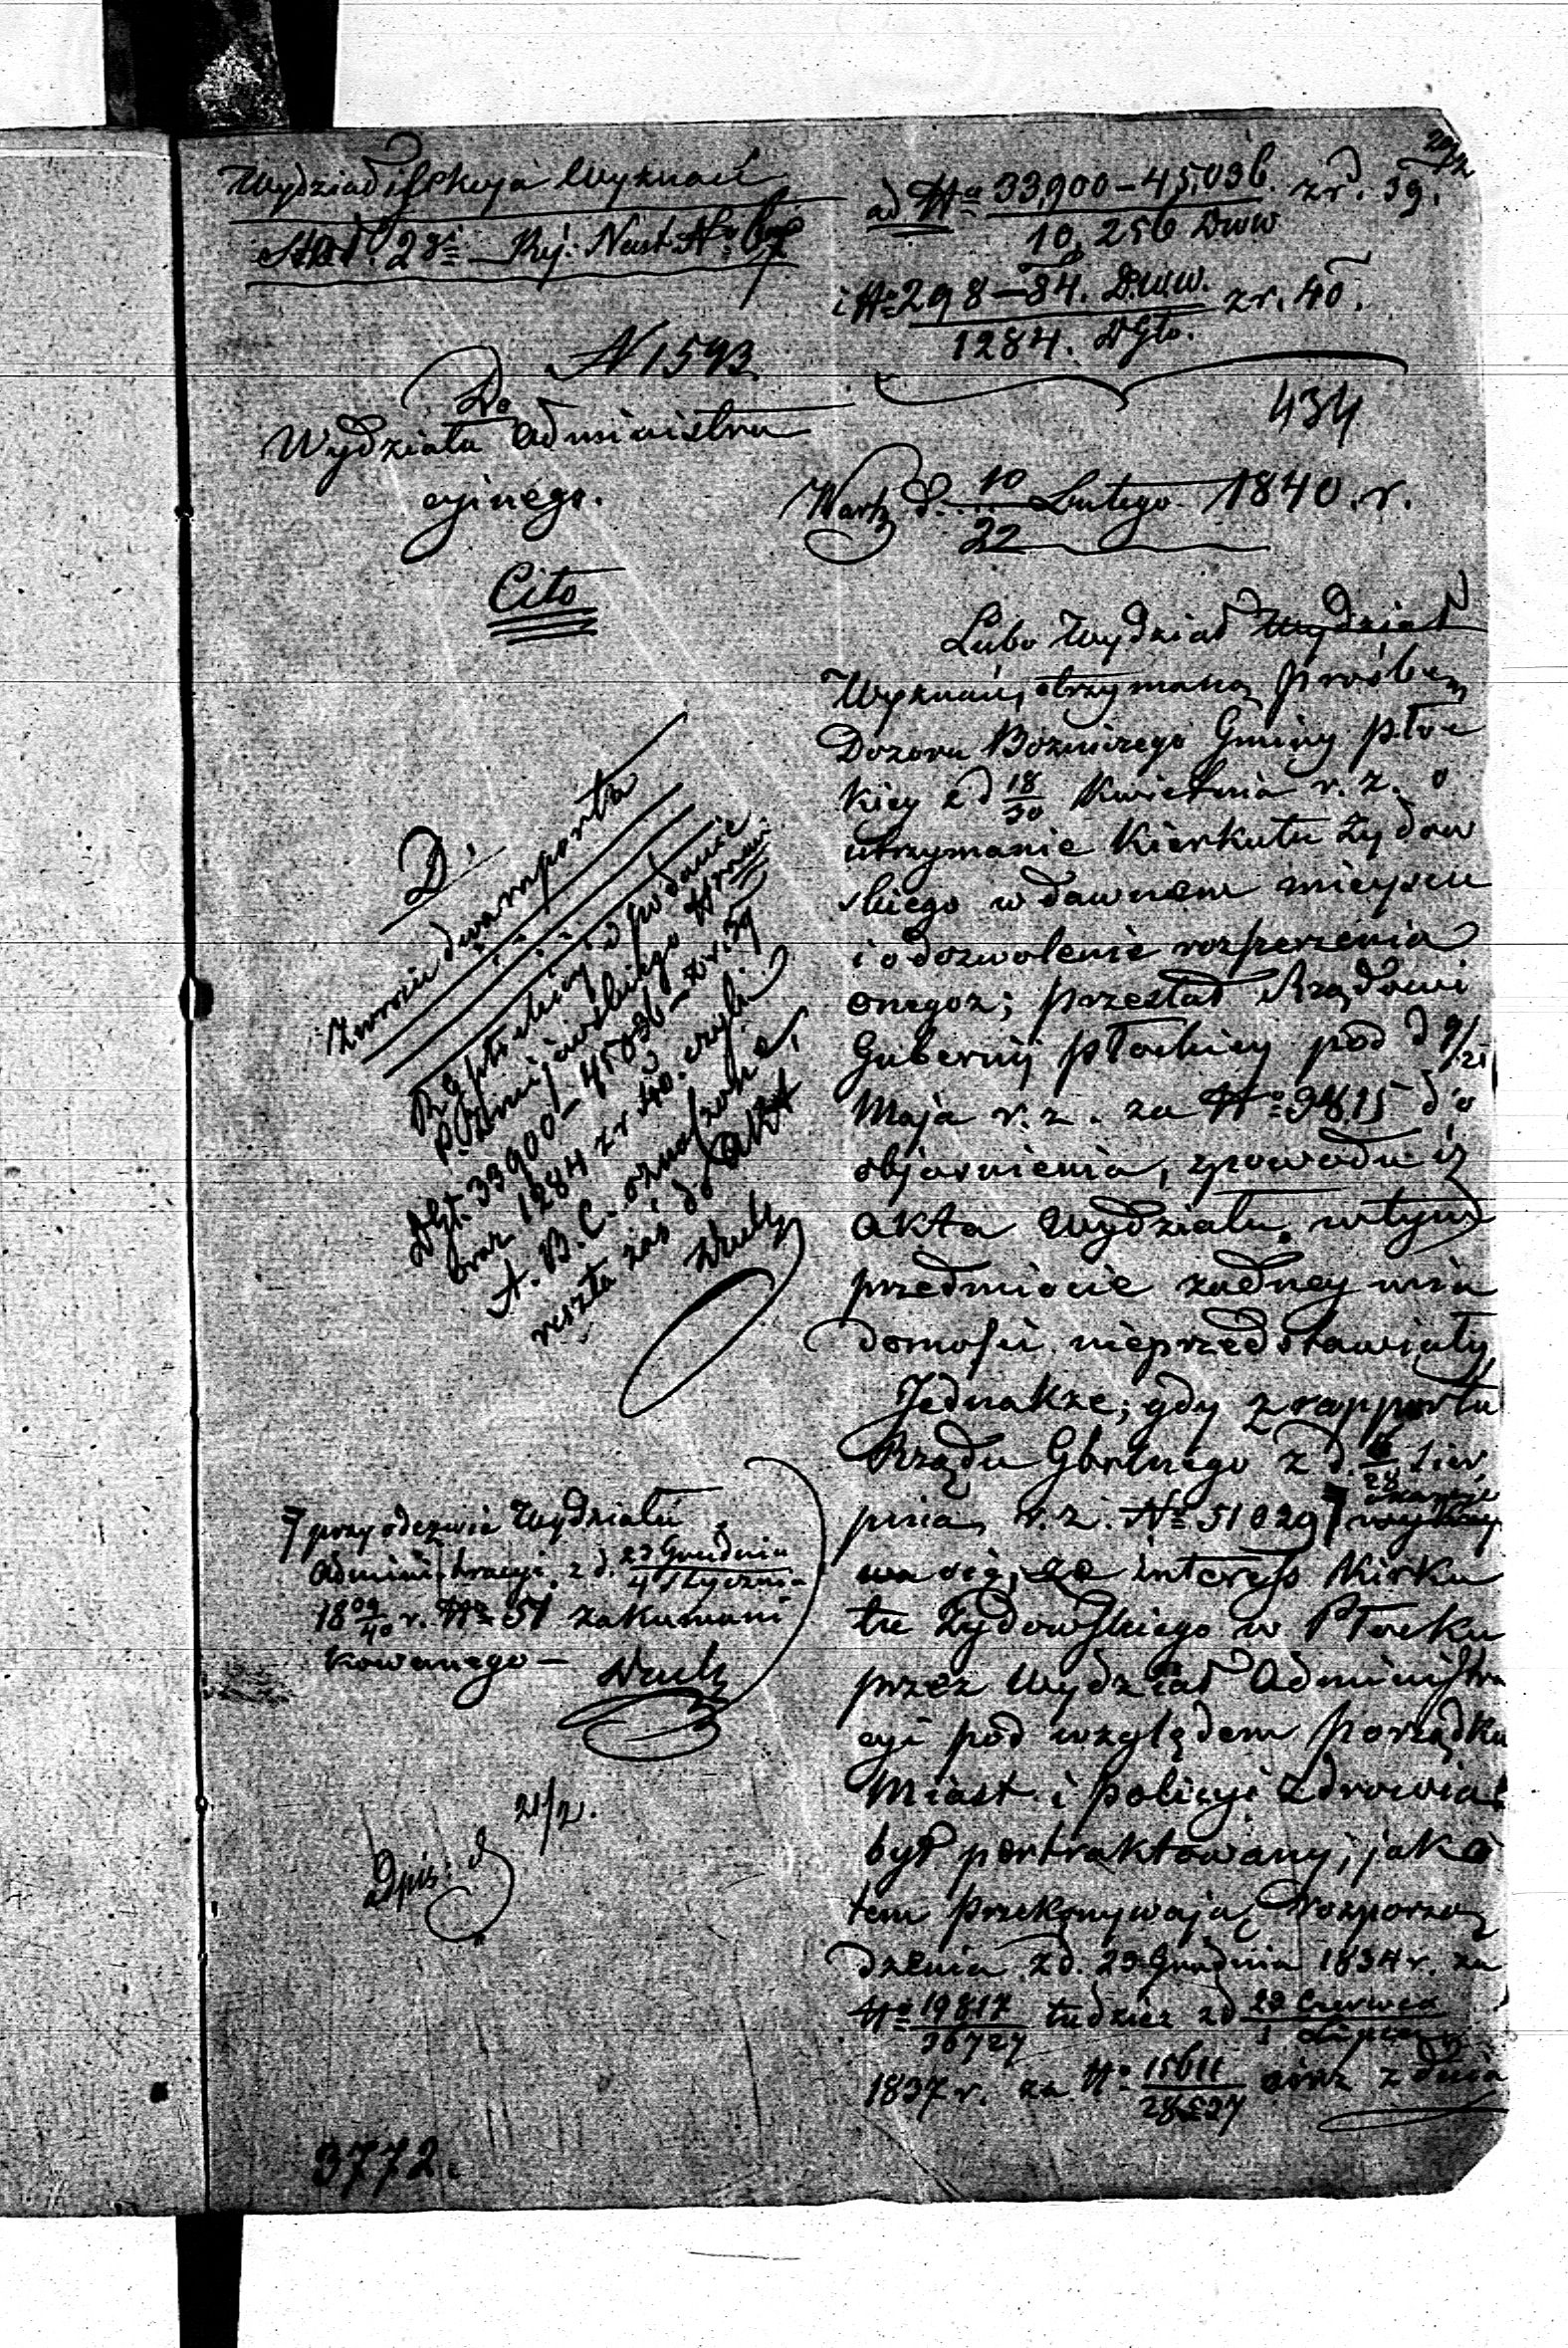 Wydział Wyznań
Sekt. 2ga
ad No 33,900–45,036. z r. 39.
10,256 Dww
i No 298–84. Dww. z r. 40.
1284. DGło.
N 1593
434
Do
Wydziału Administra
cyjnego.
Cito
Warsz. d. 10/22 Lutego 1840. r.
Lubo Wydział Wydział
Wyznań, otrzymaną prośbę
Dozoru Bożniczego Gminy Płoc
kiey z d 18/30 Kwietnia r. z. o
utrzymanie Kierkutu Żydow
skiego w dawnem mieyscu
i o dozwolenie rozszerzenia
onegoż; przesłał Rządowi
Gubernij Płockiey pod d 9/21
Maja r. z. za No 9815 do
objaśnienia, zpowodu iż
Akta Wydziału w tym
przedmiocie żadney wia
domości nieprzedstawiały
Jednakże; gdy z rapportu
Rządu Gbrlnego z d. /28 Sier
pnia r. z. No 51029 okazuje
się, że interess Kirku
tu Żydowskiego w Płocku
przez Wydział Administra
cyi pod względem porządku
Miast i policyi zdrowia
był pertraktowany, jak o
tem przekonywają rozporzą
dzenia z d. 23 Grudnia 1834 r. za
No 19817/36727 tudzież z d 29 Czerwca/ Lipca
1837 r. za No 15611/28527 oraz z dnia
D.
Zwrócić dwa rapporta
33900–45036– z r. 39
oraz 1284 z r. 40. czyli
A. B. C. oznaczone,
reszta zaś do akt
przy odezwie Wydziału
Administracyi z d. 23 Grudnia/4 Stycznia
18 39/40 r. No 51 zakommuni
kowanego –
21/2.
3772.